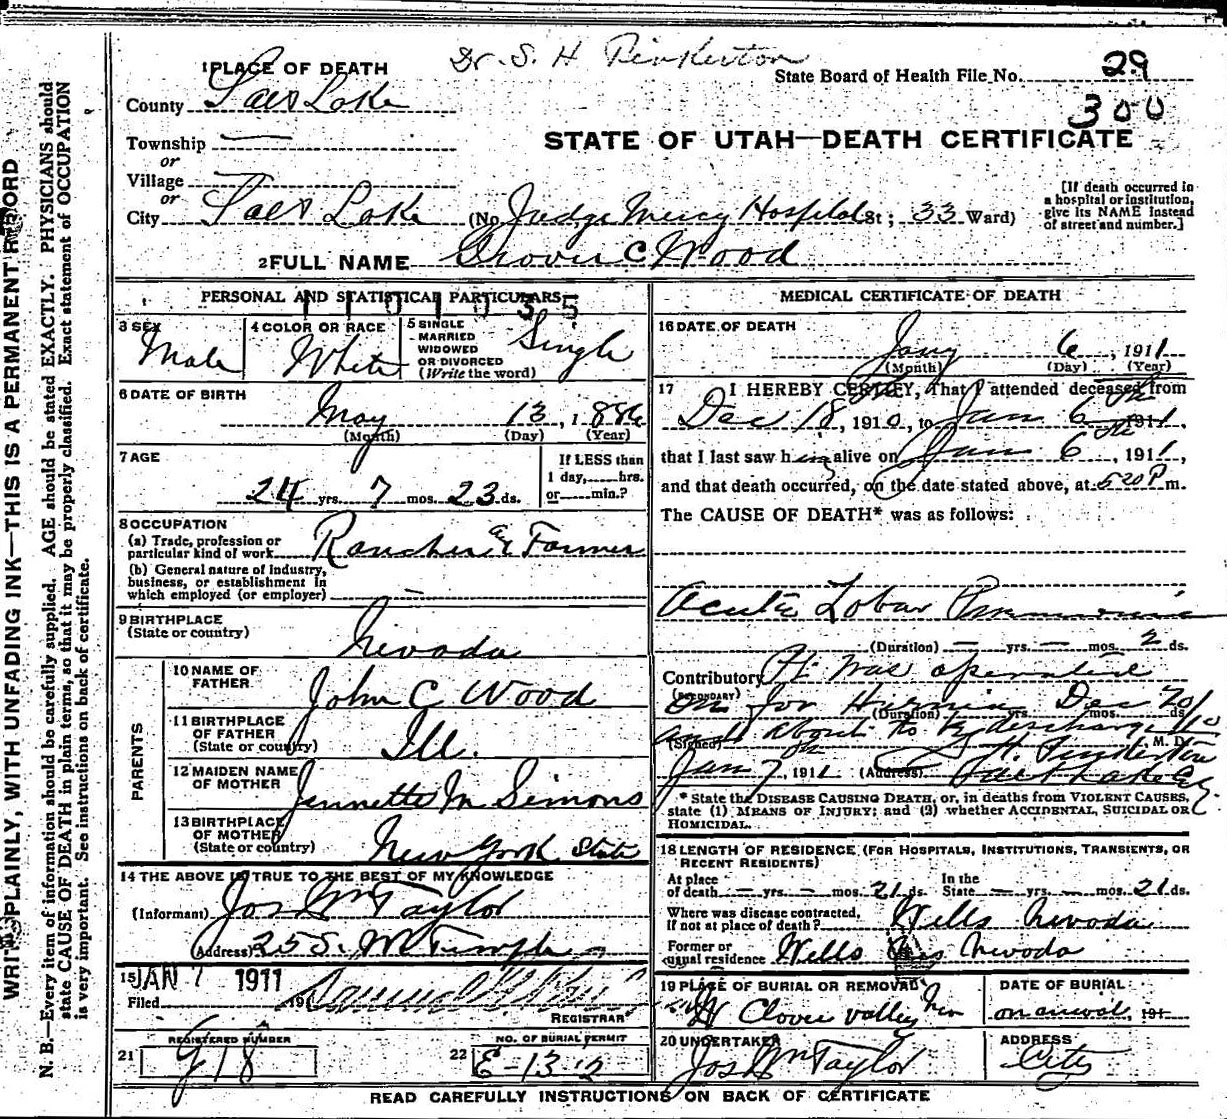 WRITE PLAINLY, WITH UNFADING INK—THIS IS A PERMANENT RECORD
N. B.—Every item of information should be carefully supplied. AGE should be stated EXACTLY. PHYSICIANS should
state CAUSE OF DEATH in plain terms, so that it may be properly classified. Exact statement of OCCUPATION
is very important. See instructions on back of certificate.
Dr. S. H Pinkerton
1 PLACE OF DEATH
State Board of Health File No. 29
300
County Salt Lake
STATE OF UTAH—DEATH CERTIFICATE
Township —
or
Village —
or
City Salt Lake (No. Judge Mercy Hospital St; 33 Ward)
[If death occurred in
a hospital or institution,
give its NAME instead
of street and number.]
2 FULL NAME Grover C Wood
PERSONAL AND STATISTICAL PARTICULARS
3 SEX Male
4 COLOR OR RACE White
5 SINGLE
MARRIED
WIDOWED
OR DIVORCED
(Write the word) Single
6 DATE OF BIRTH
May 13, 1886
(Month) (Day) (Year)
7 AGE
24 yrs. 7 mos. 23 ds.
If LESS than
1 day, hrs.
or min.?
8 OCCUPATION
(a) Trade, profession or
particular kind of work Rancher & Farmer
(b) General nature of industry,
business, or establishment in
which employed (or employer) —
9 BIRTHPLACE
(State or country) Nevada
PARENTS
10 NAME OF
FATHER John C Wood
11 BIRTHPLACE
OF FATHER
(State or country) Ill.
12 MAIDEN NAME
OF MOTHER Jennette M Simons
13 BIRTHPLACE
OF MOTHER
(State or country) New York State
14 THE ABOVE IS TRUE TO THE BEST OF MY KNOWLEDGE
(Informant) Jos Wm Taylor
(Address) 25 S. W Temple
15 JAN 7 1911
Filed 191
REGISTRAR
REGISTERED NUMBER
21 G 18
NO. OF BURIAL PERMIT
22 E-13-2
MEDICAL CERTIFICATE OF DEATH
16 DATE OF DEATH
Jany 6, 1911
(Month) (Day) (Year)
17 I HEREBY CERTIFY, That I attended deceased from
Dec 18, 1910, to Jan 6th 1911,
that I last saw him alive on Jan 6th, 1911,
and that death occurred, on the date stated above, at 520 P m.
The CAUSE OF DEATH* was as follows:
Acute Lobar Pneumonia
(Duration) — yrs. — mos. 2 ds.
Contributory Pt was operated
(SECONDARY)
on for Hernia Dec 20/10
(Duration) yrs. mos. ds.
and about to be discharged
(Signed) S. H. Pinkerton M. D.
Jan 7th, 1911 (Address) Salt Lake City
* State the DISEASE CAUSING DEATH, or, in deaths from VIOLENT CAUSES,
state (1) MEANS OF INJURY; and (3) whether ACCIDENTAL, SUICIDAL OR
HOMICIDAL.
18 LENGTH OF RESIDENCE (FOR HOSPITALS, INSTITUTIONS, TRANSIENTS, OR
RECENT RESIDENTS)
At place
of death — yrs. — mos. 21 ds.
In the
State — yrs. — mos. 21 ds.
Where was disease contracted,
if not at place of death? Wells Nevada
Former or
usual residence Wells Nevada
19 PLACE OF BURIAL OR REMOVAL
Clover valley Nev
DATE OF BURIAL
on arrival, 191
20 UNDERTAKER
Jos Wm Taylor
ADDRESS
City
READ CAREFULLY INSTRUCTIONS ON BACK OF CERTIFICATE